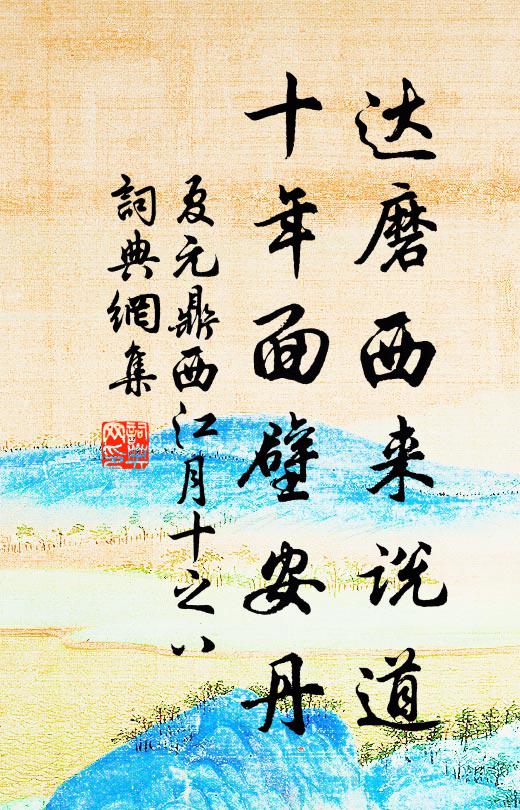 达磨西来说道
十年面壁安丹
夏元鼎西江月十之八
詞典網集